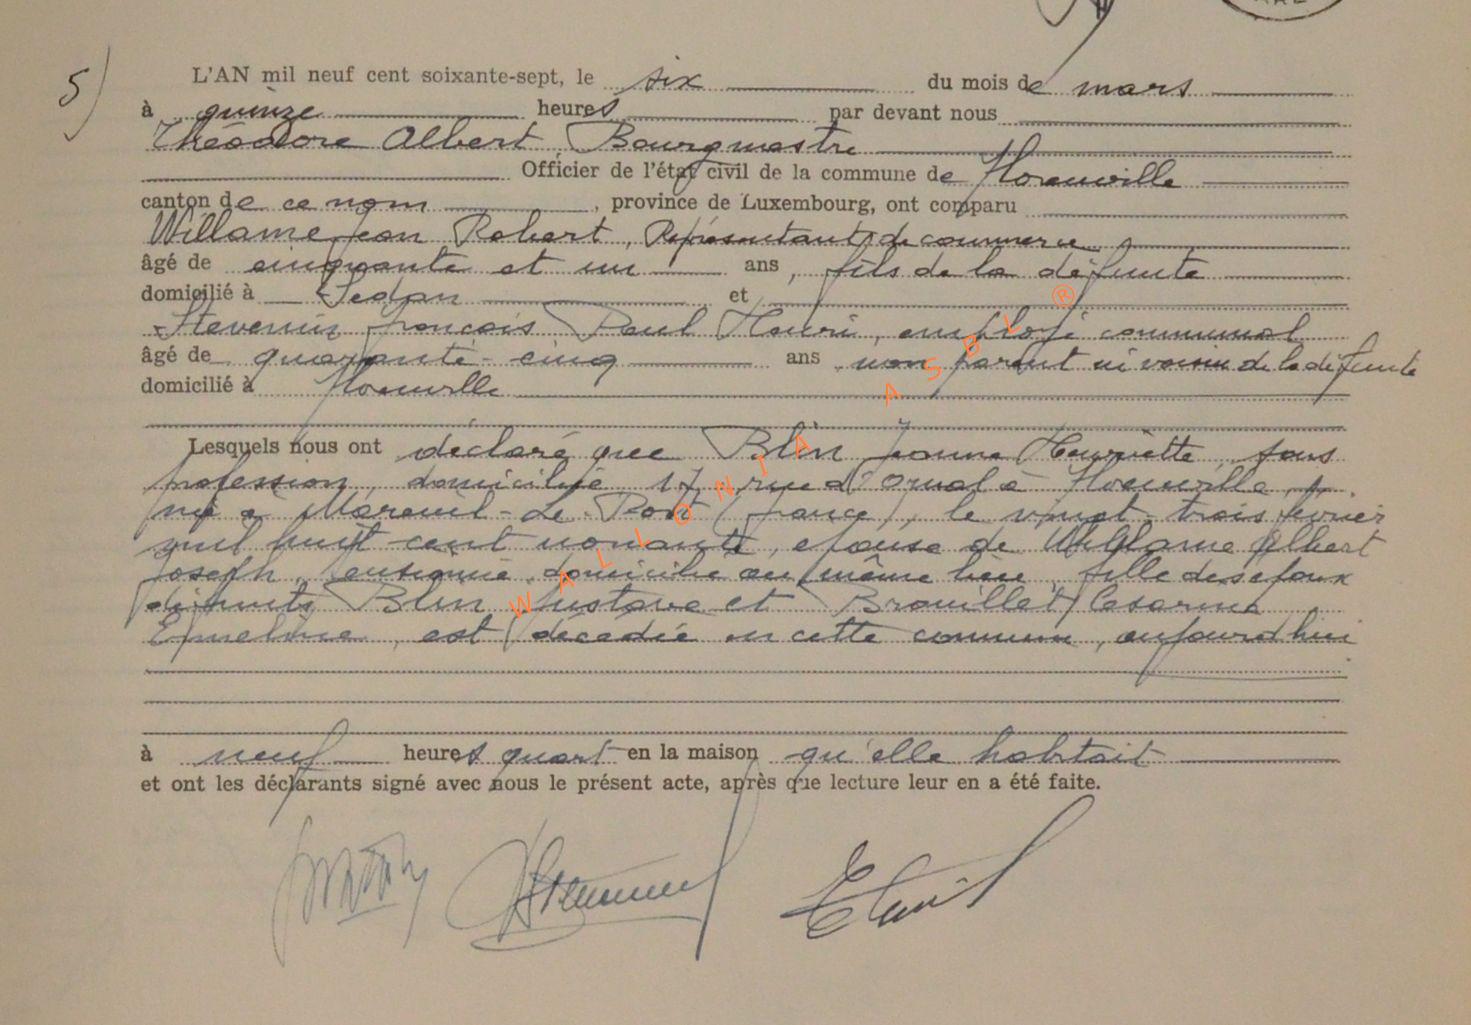 5)
L'AN mil neuf cent soixante-sept, le six du mois de mars
à quinze heures par devant nous
Théodore Albert, Bourgmestre
Officier de l'état civil de la commune de Florenville
canton de ce nom, province de Luxembourg, ont comparu
Willame Jean Robert, Représentant de commerce
âgé de cinquante et un ans, fils de la défunte
domicilié à Sedan et
Stevenin François Paul Henri, employé communal
âgé de quarante-cinq ans non parent ni voisin de la défunte
domicilié à Florenville
Lesquels nous ont déclaré que Blin Jeanne Henriette, sans
profession, domiciliée 17, rue d'Orval à Florenville,
née à Mareuil-Le-Port (France), le vingt-trois février
mil huit cent nonante, épouse de Willame Albert
Joseph, pensionné, domicilié au même lieu, fille des époux
défunts Blin Gustave et Brouillet Césarine
Emeline, est décédée en cette commune, aujourd'hui
à neuf heures quart en la maison qu'elle habitait
et ont les déclarants signé avec nous le présent acte, après que lecture leur en a été faite.
WALLONIA ASBL ®